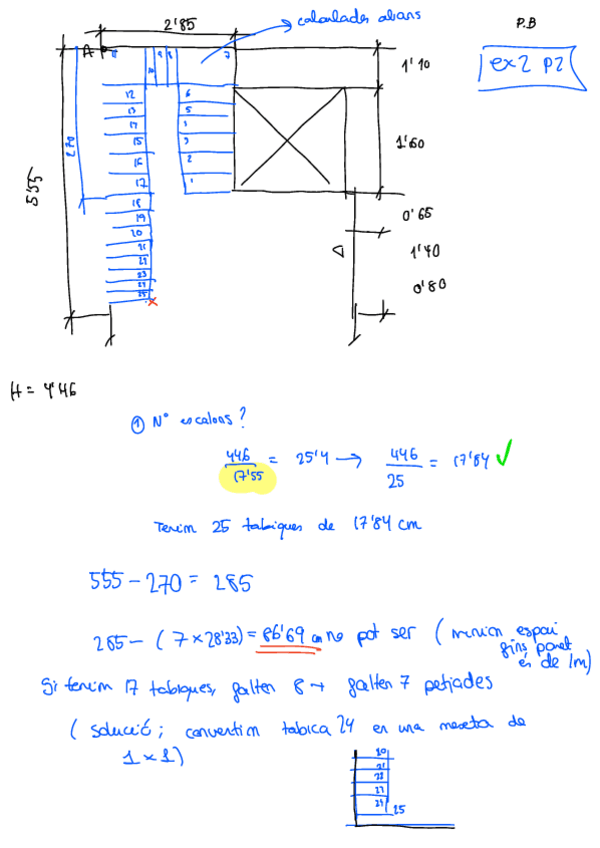 2'85
calculades abans
P.B
ex2 p2
A
7
1'10
12
6
13
5
17
15
3
16
2
17
1
270
1'60
5'55
18
19
20
21
22
23
24
25
0'65
1'40
0'80
H = 4'46
① Nº escalons?
446/17'55 = 25'4 → 446/25 = 17'84 ✓
Tenim 25 tabiques de 17'84 cm
555 - 270 = 285
285 - (7 x 28'33) = 86'69 cm no pot ser (minim espai
fins paret
és de 1m)
Si tenim 17 tabiques, falten 8 → falten 7 petjades
(solució; convertim tabica 24 en una meseta de
1 x 1)
20
21
22
23
24
25